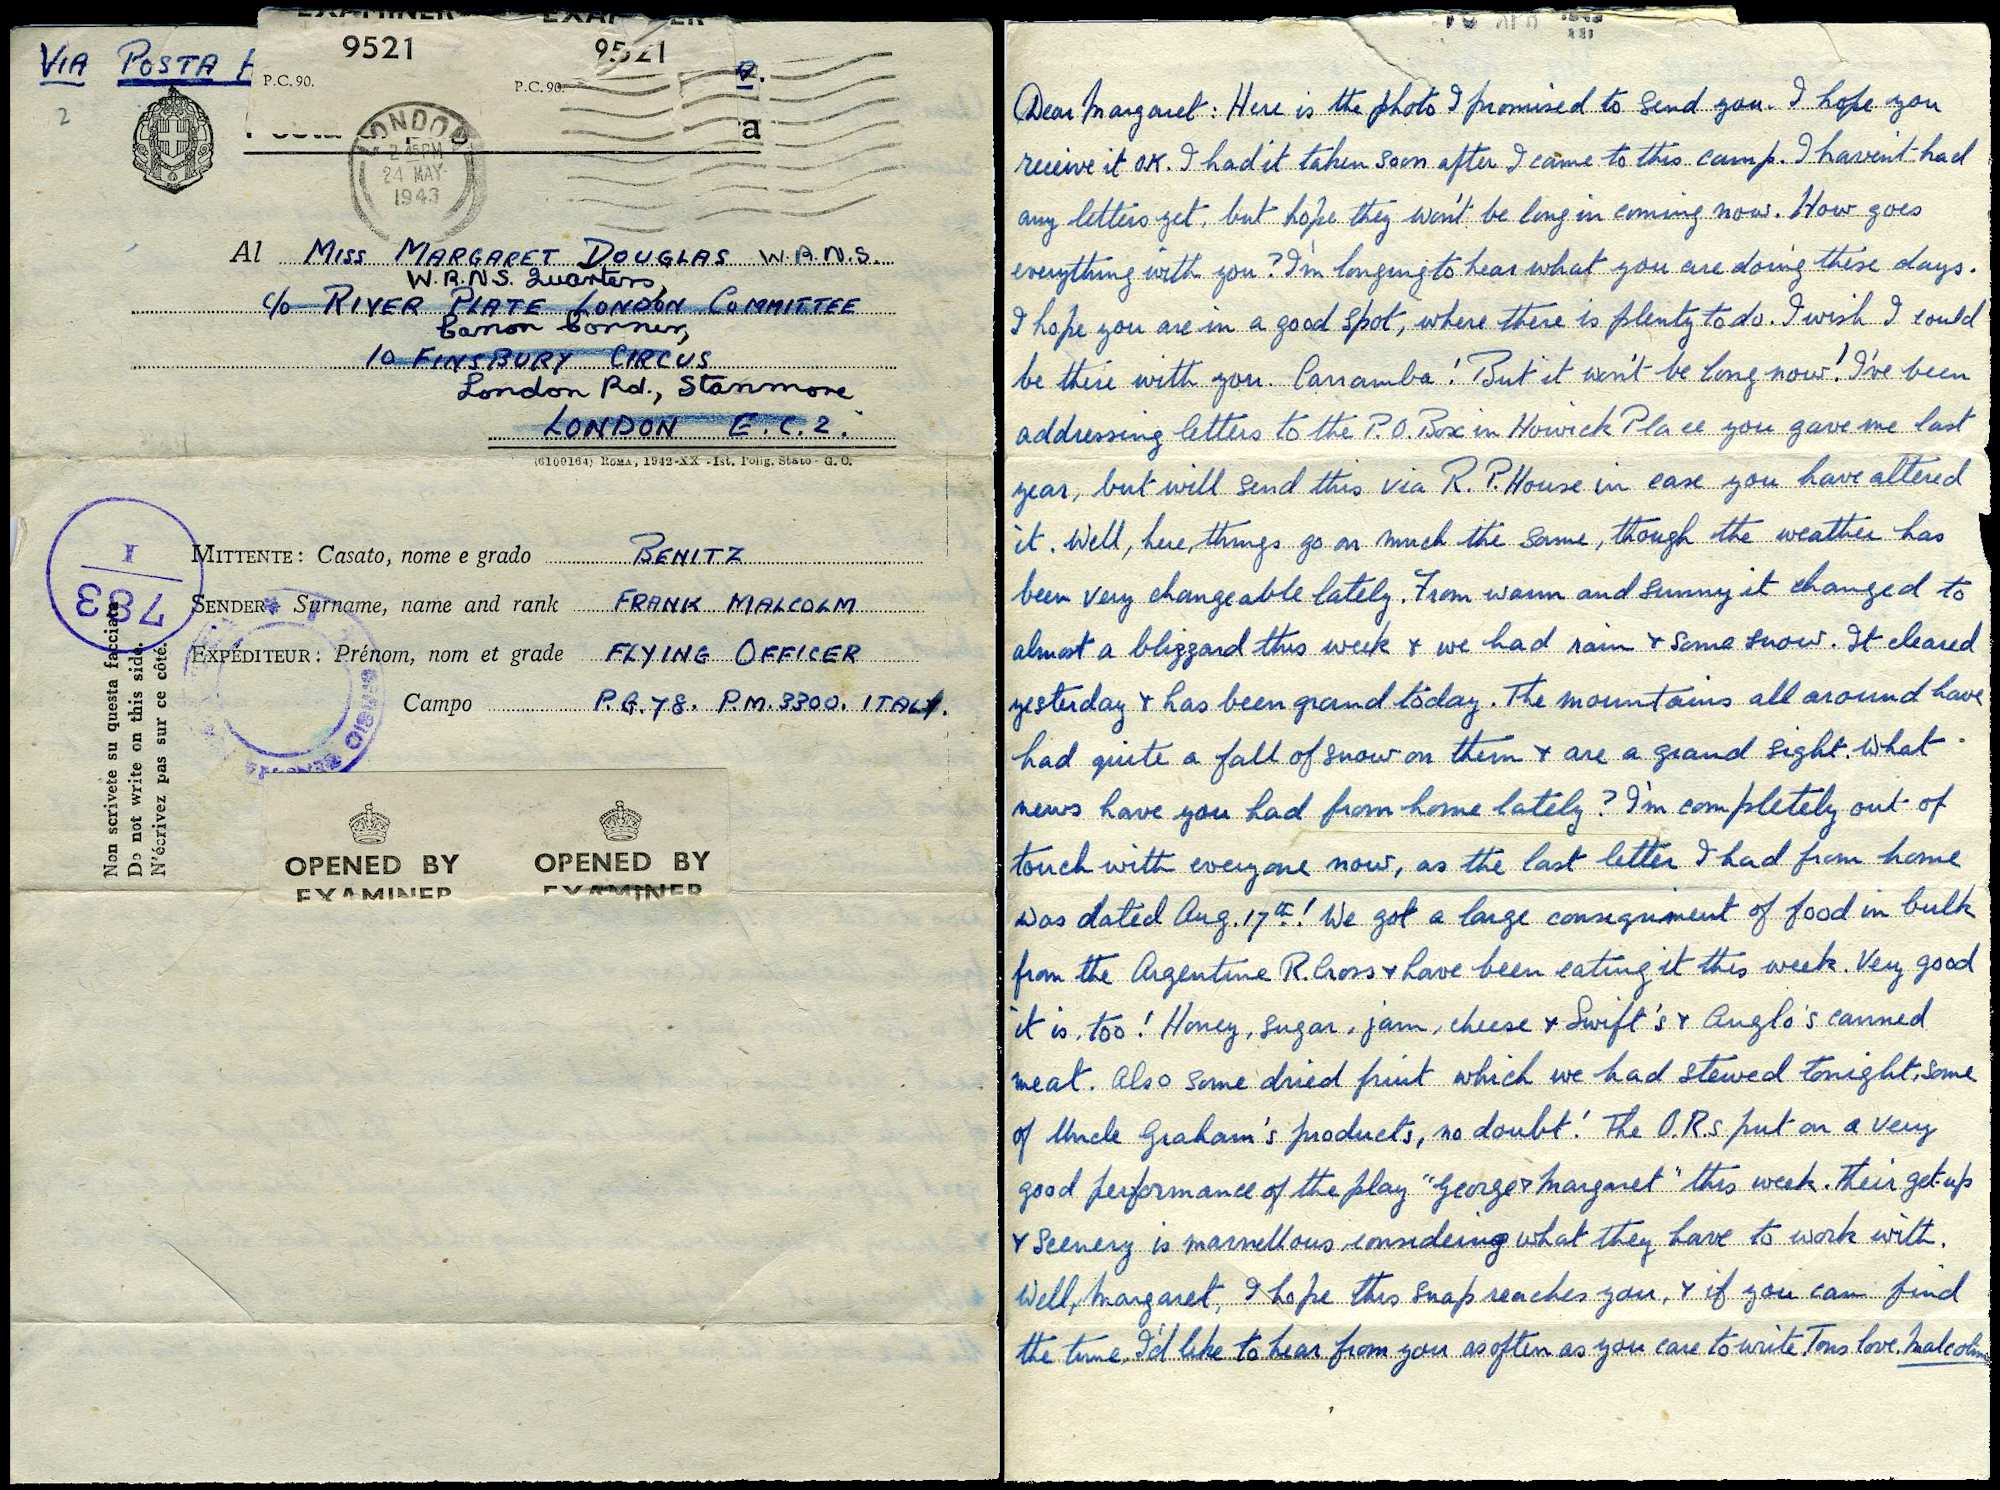 EXAMINER EXAMINER
9521 9521
P.C. 90. P.C. 90.
VIA POSTA
2
LONDON
2.45PM
24 MAY
1943
Al MISS MARGARET DOUGLAS W.R.N.S.
W.R.N.S. Quarters,
c/o RIVER PLATE LONDON COMMITTEE
Canon Corner,
10 FINSBURY CIRCUS
London Rd., Stanmore
LONDON E.C.2.
(6109164) ROMA, 1942-XX - Ist. Polig. Stato - G. O.
I
783
MITTENTE: Casato, nome e grado BENITZ
SENDER: Surname, name and rank FRANK MALCOLM
EXPÉDITEUR: Prénom, nom et grade FLYING OFFICER
Campo P.G. 78. P.M. 3300. ITALY.
Non scrivete su questa facciata
Do not write on this side.
N'écrivez pas sur ce côté.
OPENED BY OPENED BY
EXAMINER EXAMINER
Dear Margaret: Here is the photo I promised to send you. I hope you
receive it OK. I had it taken soon after I came to this camp. I haven't had
any letters yet, but hope they won't be long in coming now. How goes
everything with you? I'm longing to hear what you are doing these days.
I hope you are in a good spot, where there is plenty to do. I wish I could
be there with you. Carramba! But it won't be long now! I've been
addressing letters to the P.O. Box in Howick Place you gave me last
year, but will send this via R.P. House in case you have altered
it. Well, here, things go on much the same, though the weather has
been very changeable lately. From warm and sunny it changed to
almost a blizzard this week & we had rain & some snow. It cleared
yesterday & has been grand today. The mountains all around have
had quite a fall of snow on them & are a grand sight. What
news have you had from home lately? I'm completely out of
touch with everyone now, as the last letter I had from home
was dated Aug. 17th! We got a large consignment of food in bulk
from the Argentine R. Cross & have been eating it this week. Very good
it is, too! Honey, sugar, jam, cheese & Swift's & Anglo's canned
meat. Also some dried fruit which we had stewed tonight, some
of Uncle Graham's products, no doubt! The O.R.s put on a very
good performance of the play "George & Margaret" this week. Their get-up
& scenery is marvellous considering what they have to work with.
Well, Margaret, I hope this snap reaches you, & if you can find
the time, I'd like to hear from you as often as you care to write. Tons love, Malcolm